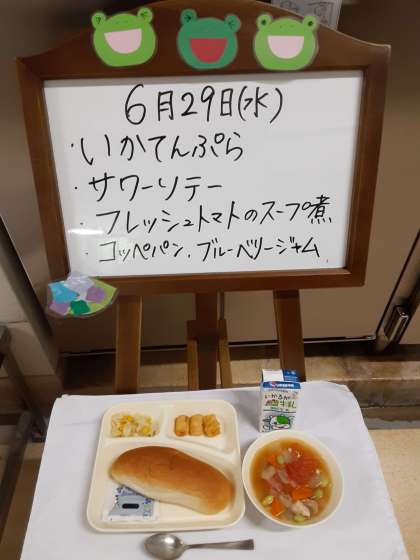 6月29日(水)
・いかてんぷら
・サワーソテー
・フレッシュトマトのスープ煮
・コッペパン、ブルーベリージャム
いかるが
牛乳